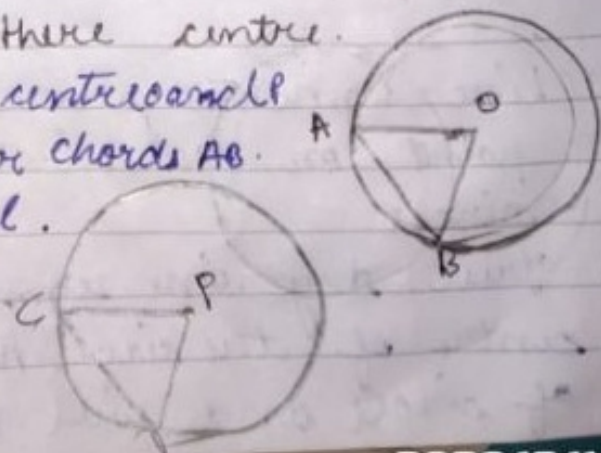 there centre.
centre o and P
or chords AB.
l.
A
O
B
C
P